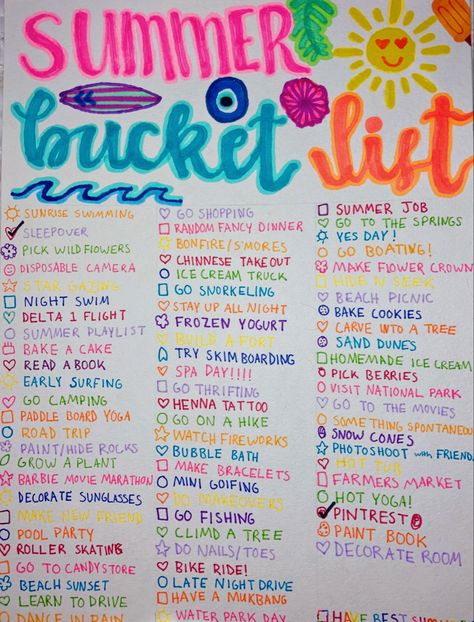 SUMMER
bucket list
SUNRISE SWIMMING
SLEEPOVER
PICK WILDFLOWERS
DISPOSABLE CAMERA
STAR GAZING
NIGHT SWIM
DELTA 1 FLIGHT
SUMMER PLAYLIST
BAKE A CAKE
READ A BOOK
EARLY SURFING
GO CAMPING
PADDLE BOARD YOGA
ROAD TRIP
PAINT/HIDE ROCKS
GROW A PLANT
BARBIE MOVIE MARATHON
DECORATE SUNGLASSES
MAKE NEW FRIEND
POOL PARTY
ROLLER SKATING
GO TO CANDYSTORE
BEACH SUNSET
LEARN TO DRIVE
DANCE IN RAIN
GO SHOPPING
RANDOM FANCY DINNER
BONFIRE/S'MORES
CHINNESE TAKEOUT
ICE CREAM TRUCK
GO SNORKELING
STAY UP ALL NIGHT
FROZEN YOGURT
BUILD A FORT
TRY SKIM BOARDING
SPA DAY!!!!
GO THRIFTING
HENNA TATTOO
GO ON A HIKE
WATCH FIREWORKS
BUBBLE BATH
MAKE BRACELETS
MINI GOLFING
DO MAKEOVERS
GO FISHING
CLIMB A TREE
DO NAILS/TOES
BIKE RIDE!
LATE NIGHT DRIVE
HAVE A MUKBANG
WATER PARK DAY
SUMMER JOB
GO TO THE SPRINGS
YES DAY!
GO BOATING!
MAKE FLOWER CROWN
HIDE N SEEK
BEACH PICNIC
BAKE COOKIES
CARVE INTO A TREE
SAND DUNES
HOMEMADE ICE CREAM
PICK BERRIES
VISIT NATIONAL PARK
GO TO THE MOVIES
SOMETHING SPONTANEOU
SNOW CONES
PHOTOSHOOT with FRIEND
HOT TUB
FARMERS MARKET
HOT YOGA!
PINTREST
PAINT BOOK
DECORATE ROOM
HAVE BEST SUMM